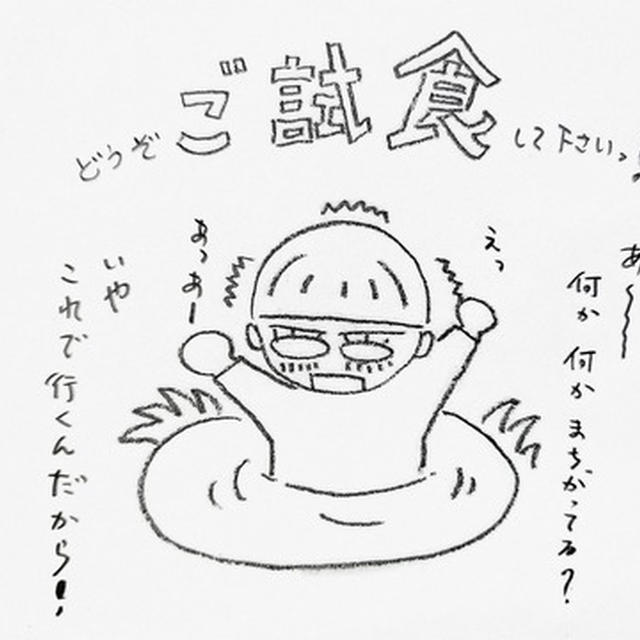 どうぞご試食して下さいっ
あ〜
何か何かまちがってる?
えっ
あっあー
いや
これで行くんだから!